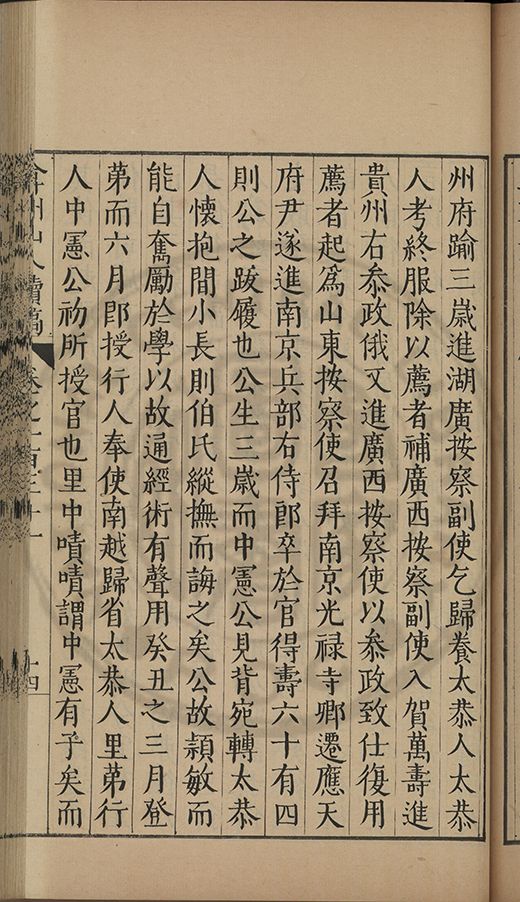 州府踰三歲進湖廣按察副使乞歸養太恭人太恭
人考終服除以薦者補廣西按察副使入賀萬壽進
貴州右叅政俄又進廣西按察使以叅政致仕復用
薦者起爲山東按察使召拜南京光禄寺卿遷應天
府尹遂進南京兵部右侍郎卒於官得壽六十有四
則公之踐履也公生三歲而中憲公見背宛轉太恭
人懷抱間小長則伯氏縱撫而誨之矣公故頴敏而
能自奮勵於學以故通經術有聲用癸丑之三月登
第而六月卽授行人奉使南越歸省太恭人里第行
人中憲公初所授官也里中嘖嘖謂中憲有子矣而
弇州山人續稿 卷之一百三十一 十四